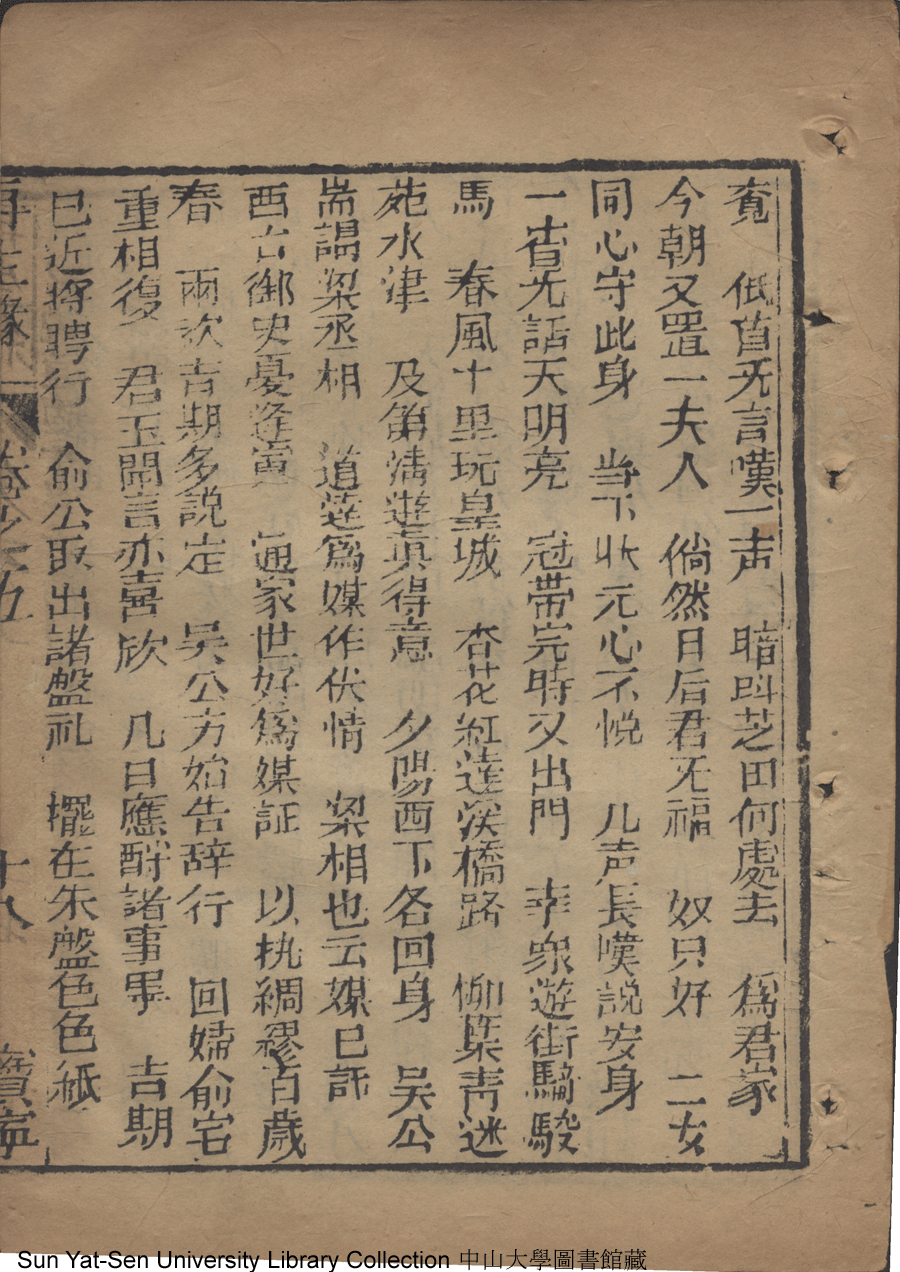 寃 低首无言嘆一声 暗呌芝田何處去 爲君家
今朝又罡一夫人 倘然日后君无福 奴只好 二女
同心守此身 当下状元心不悦 几声長嘆説安身
一宵无話天明亮 冠帶完時又出門 幸衆遊街騎駿
馬 春風十里玩皇城 杏花紅蓬溪橋路 柳葉靑迷
苑水津 及第淸遊眞得意 夕陽西下各回身 吴公
耑謁梁丞相 道達爲媒作伏情 梁相也云媒已託
西台御史憂逢寅 通家世好爲媒証 以执綢繆百歲
春 兩次吉期多説定 吴公方始告辞行 回婦俞宅
重相復 君玉聞言亦喜欣 几日應酧諸事畢 吉期
已近將聘行 俞公取出諸盤礼 擺在朱盤色色紙
再生緣 卷之五 十八 寳寧
Sun Yat-Sen University Library Collection 中山大學圖書館藏